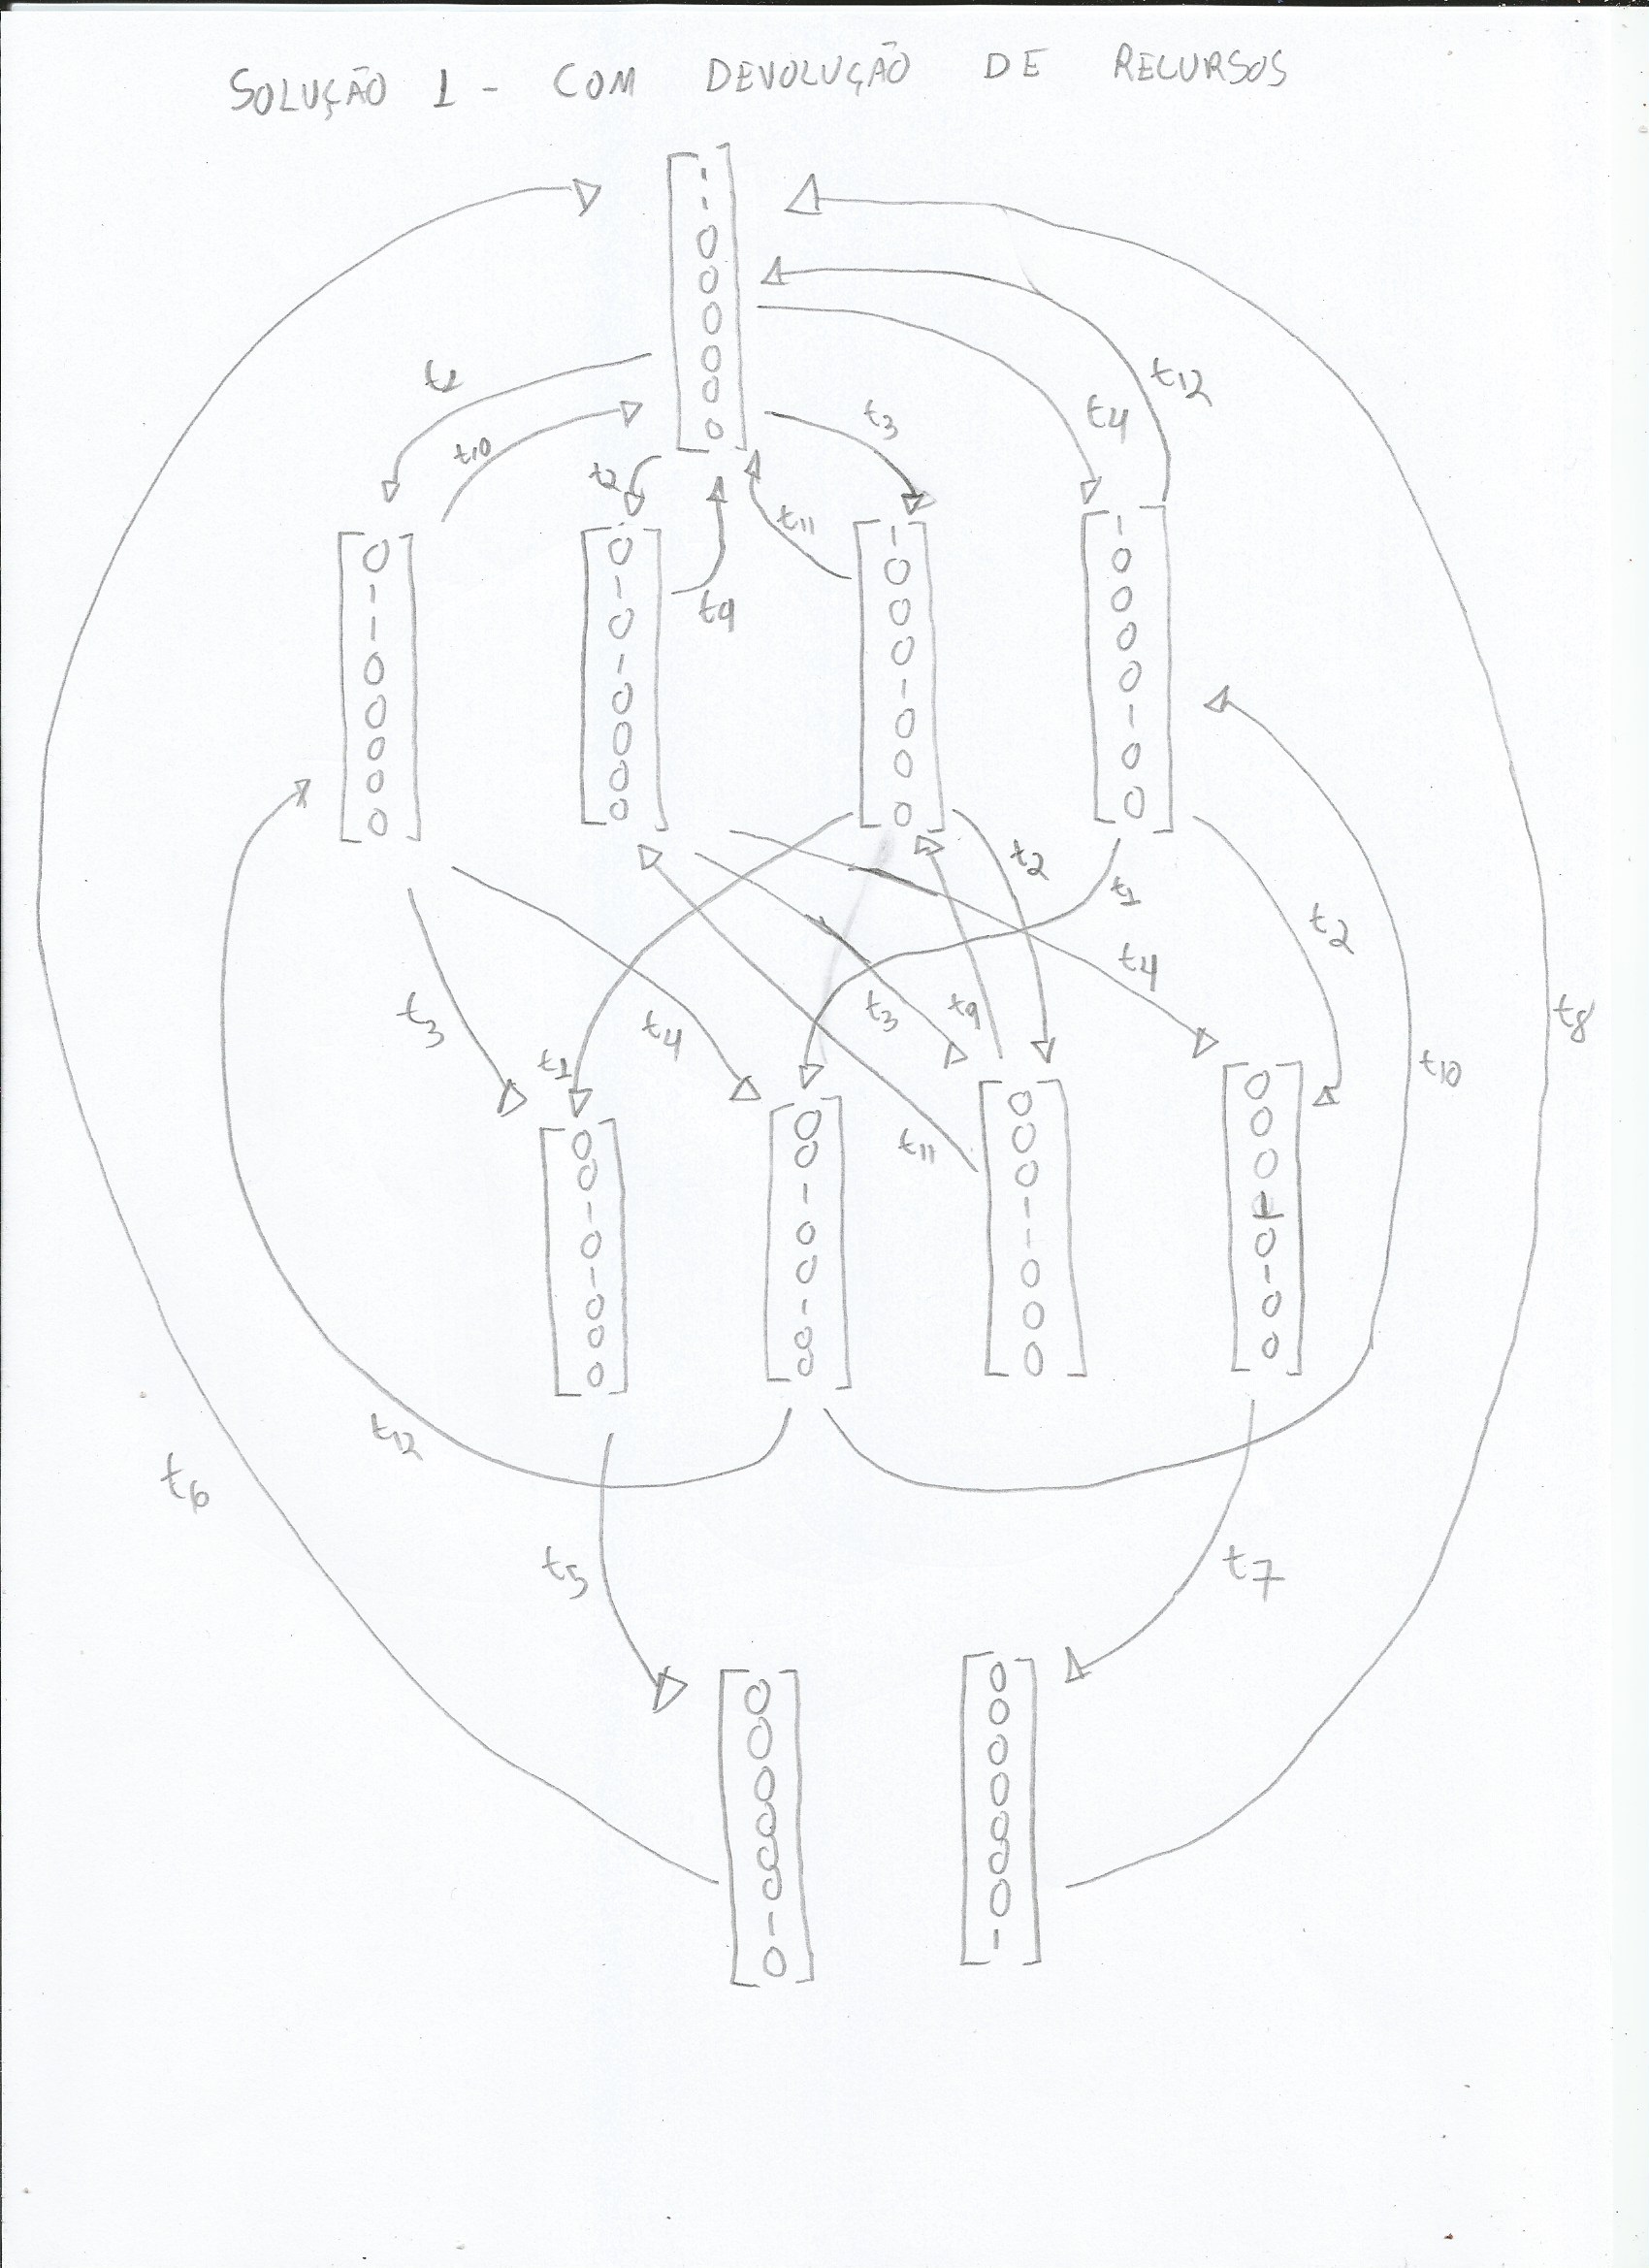 SOLUÇÃO 1 - COM DEVOLUÇÃO DE RECURSOS
[1 1 0 0 0 0 0 0]
t1
t10
t2
t9
t11
t3
t4
t12
[0 1 1 0 0 0 0 0]
[0 1 0 1 0 0 0 0]
[1 0 0 0 1 0 0 0]
[1 0 0 0 0 1 0 0]
t3
t4
t1
t3
t9
t2
t1
t4
t2
t11
t10
t8
[0 0 1 0 1 0 0 0]
[0 0 1 0 0 1 0 0]
[0 0 0 1 1 0 0 0]
[0 0 0 1 0 1 0 0]
t12
t6
t5
t7
[0 0 0 0 0 0 1 0]
[0 0 0 0 0 0 0 1]